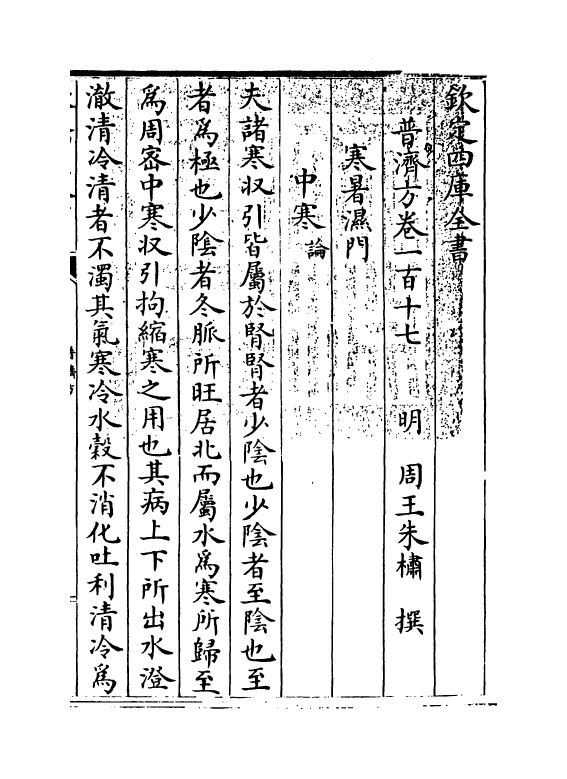 欽定四庫全書
普濟方卷一百十七 明 周王朱橚 撰
寒暑濕門
中寒論
夫諸寒収引皆屬於腎腎者少陰也少陰者至陰也至
者為極也少陰者冬脈所旺居北而屬水為寒所歸至
為周宻中寒収引拘縮寒之用也其病上下所出水澄
澈清冷清者不濁其氣寒冷水穀不消化吐利清冷為